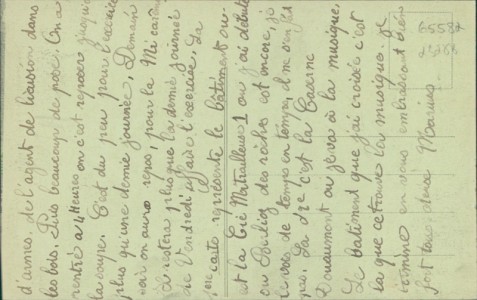 d'armes de l'agent de liaison dans
les bois. Puis beaucoup de pose. On a
rentré a 4 Heures on c'est reposer jusqu'a
la soupe. C'est du peu pour l'exercice
plus qu'une demie journée, Demain
soir on aura repos, pour la Mi-carême
Il restera plus que la demie journée
de Vendredi a faire l'exercice. La
1ère carte représente le bâtiment ou
et la Cie Mitrailleuses 1 ou j'ai débuté
ou des est encore, je
le vois de temps en temps, il ne s'en fait
pas. La 2e c'est la Caserne
Douaumont ou je vais à la musique.
Le batiment que j'ai croisée c'est
la que ce trouve la musique. Je
termine en vous embrassant bien
fort Marius